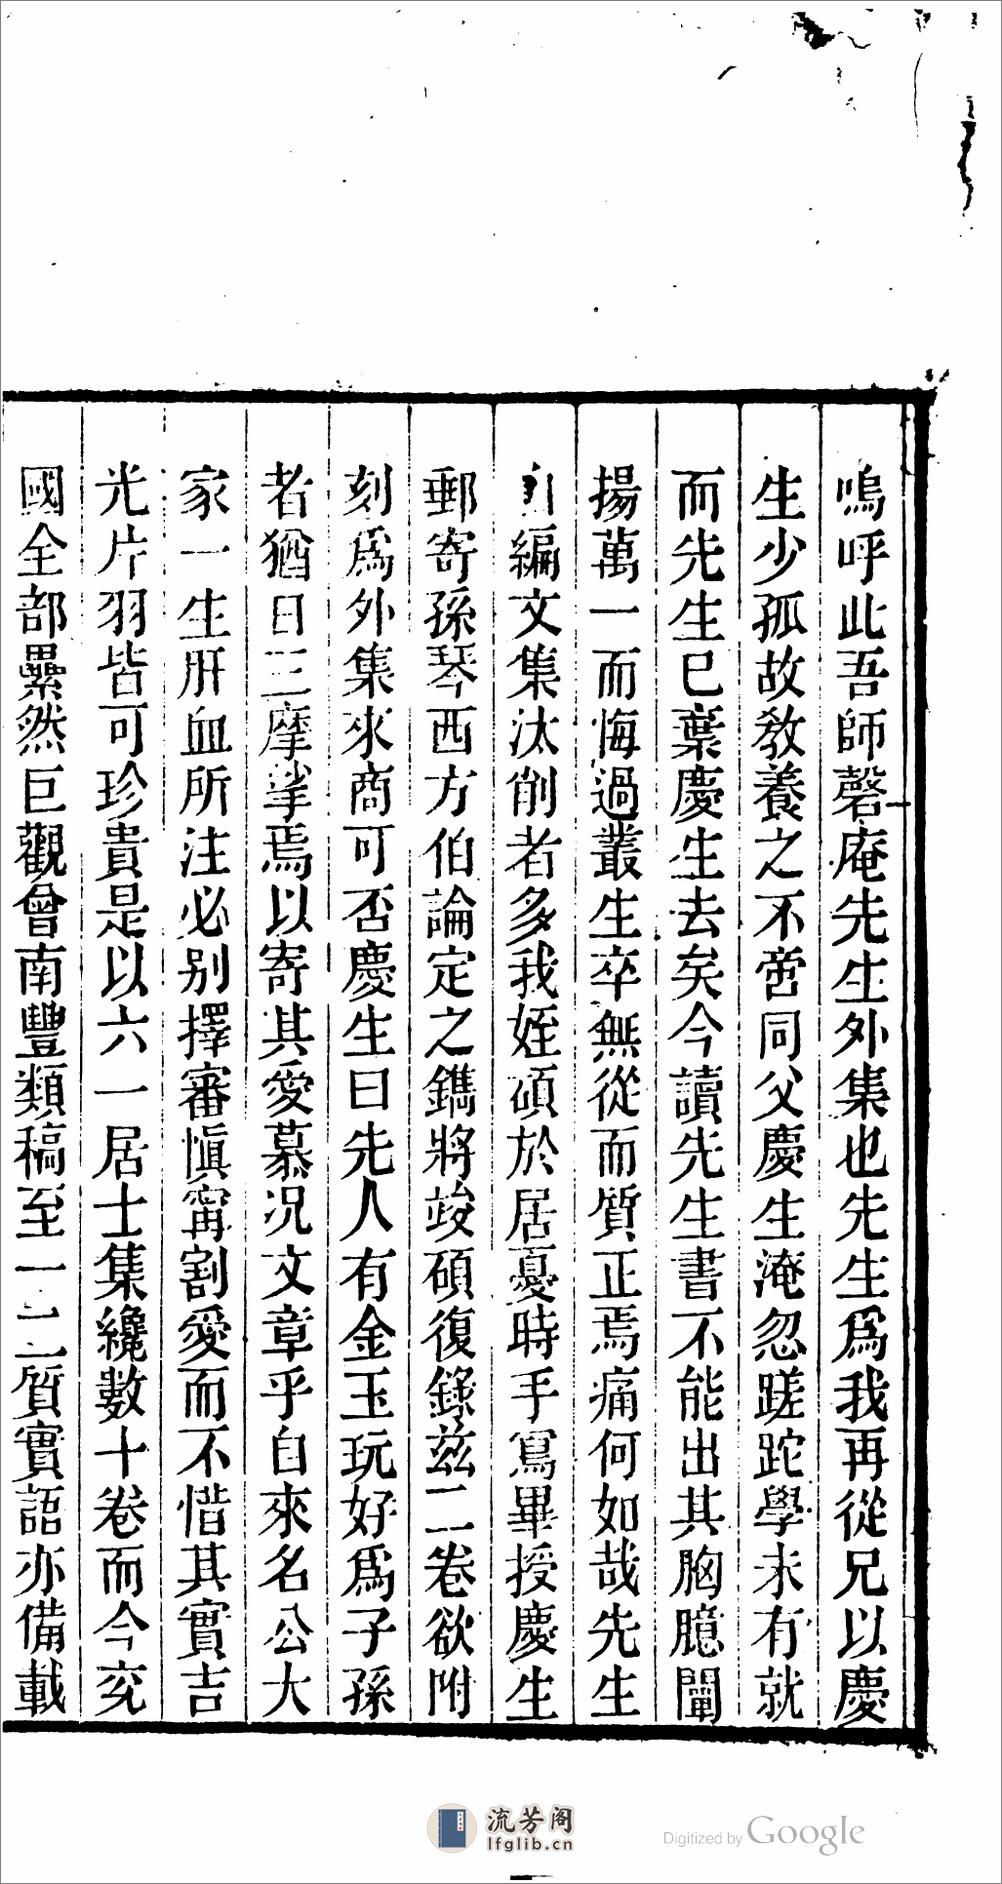 嗚呼此吾師磬庵先生外集也先生爲我再從兄以慶
生少孤故敎養之不啻同父慶生淹忽蹉跎學未有就
而先生已棄慶生去矣今讀先生書不能出其胸臆闡
揚萬一而悔過叢生卒無從而質正焉痛何如哉先生
自編文集汰削者多我姪碩於居憂時手寫畢授慶生
郵寄孫琴西方伯論定之鐫將竣碩復錄茲二卷欲附
刻爲外集來商可否慶生曰先人有金玉玩好爲子孫
者猶日三摩挲焉以寄其愛慕况文章乎自來名公大
家一生肝血所注必别擇審愼甯割愛而不惜其實吉
光片羽皆可珍貴是以六一居士集纔數十卷而今兖
國全部纍然巨觀曾南豐類稿至一二質實語亦備載
流芳阁
lfglib.cn
Digitized by Google